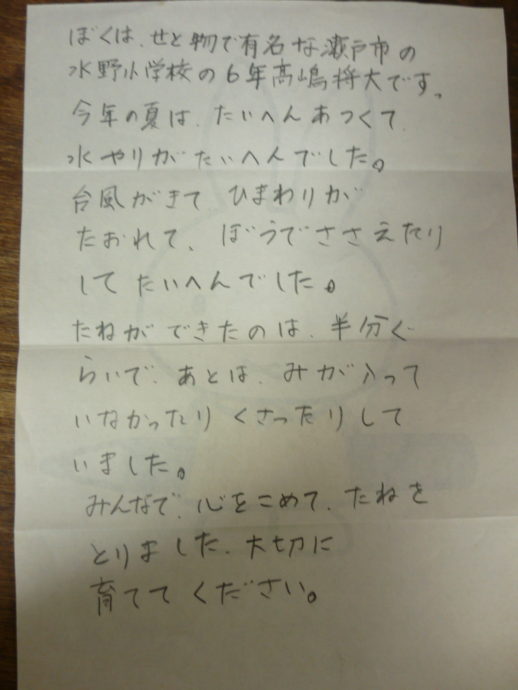 ぼくは、せと物で有名な瀬戸市の
水野小学校の6年高嶋将大です。
今年の夏は、たいへんあつくて、
水やりがたいへんでした。
台風がきて、ひまわりが
たおれて、ぼうでささえたり
してたいへんでした。
たねができたのは、半分ぐ
らいで、あとは、みが入って
いなかったりくさったりして
いました。
みんなで、心をこめて、たねを
とりました、大切に
育ててください。